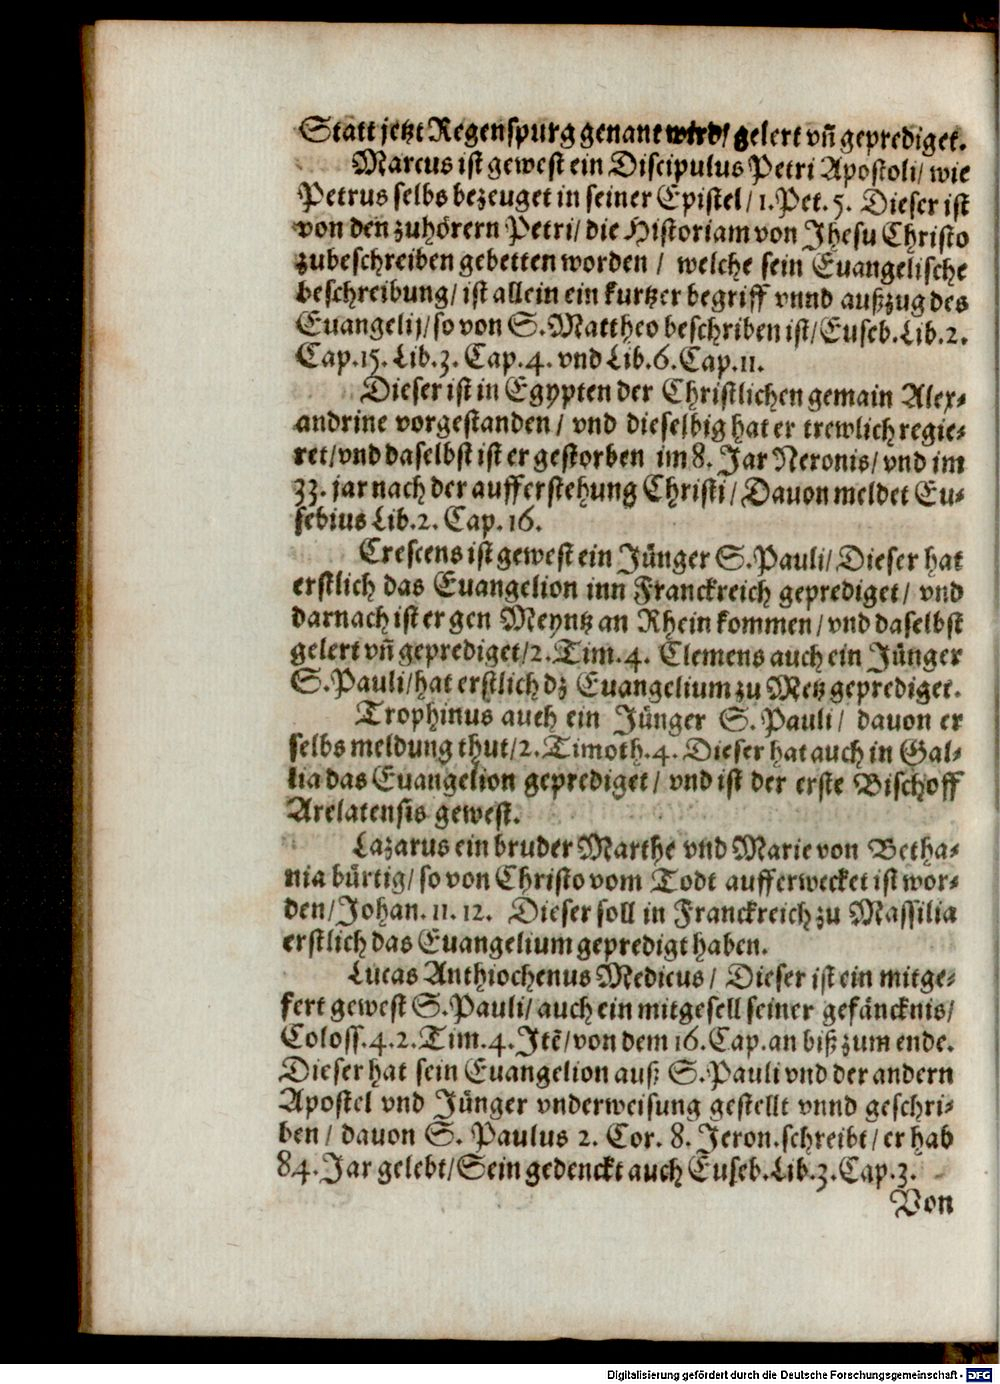 Statt jetzt Regenspurg genant wird/ gelert vñ geprediget.
Marcus ist gewest ein Discipulus Petri Apostoli/ wie
Petrus selbs bezeuget in seiner Epistel/ 1. Pet. 5. Dieser ist
von den zuhörern Petri/ die Historiam von Jhesu Christo
zubeschreiben gebetten worden / welche sein Euangelische
beschreibung/ ist allein ein kurtzer begriff vnnd außzug des
Euangelij/ so von S. Mattheo beschriben ist/ Euseb. Lib. 2.
Cap. 15. Lib. 3. Cap. 4. vnd Lib. 6. Cap. 11.
Dieser ist in Egypten der Christlichen gemain Alex-
andrine vorgestanden / vnd dieselbig hat er trewlich regie-
ret/ vnd daselbst ist er gestorben im 8. Jar Neronis/ vnd im
33. jar nach der aufferstehung Christi / Dauon meldet Eu-
sebius Lib. 2. Cap. 16.
Crescens ist gewest ein Jünger S. Pauli/ Dieser hat
erstlich das Euangelion inn Franckreich geprediget/ vnd
darnach ist er gen Meyntz an Rhein kommen/ vnd daselbst
gelert vñ geprediget/ 2. Tim. 4. Clemens auch ein Jünger
S. Pauli/ hat erstlich dz Euangelium zu Metz geprediget.
Trophinus auch ein Jünger S. Pauli/ dauon er
selbs meldung thut/ 2. Timoth. 4. Dieser hat auch in Gal-
lia das Euangelion geprediget/ vnd ist der erste Bischoff
Arelatensis gewest.
Lazarus ein bruder Marthe vnd Marie von Betha-
nia bürtig/ so von Christo vom Todt aufferwecket ist wor-
den/ Johan. 11. 12. Dieser soll in Franckreich zu Massilia
erstlich das Euangelium gepredigt haben.
Lucas Anthiochenus Medicus/ Dieser ist ein mitge-
fert gewest S. Pauli/ auch ein mitgesell seiner gefäncknis/
Coloss. 4. 2. Tim. 4. Jtẽ/ von dem 16. Cap. an biß zum ende.
Dieser hat sein Euangelion auß S. Pauli vnd der andern
Apostel vnd Jünger vnderweisung gestellt vnnd geschri-
ben / dauon S. Paulus 2. Cor. 8. Jeron. schreibt/ er hab
84. Jar gelebt/ Sein gedenckt auch Euseb. Lib. 3. Cap. 3.
Von
Digitalisierung gefördert durch die Deutsche Forschungsgemeinschaft - DFG